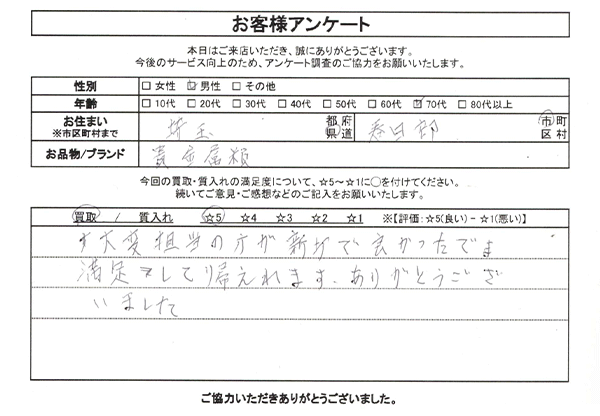 お客様アンケート
本日はご来店いただき、誠にありがとうございます。
今後のサービス向上のため、アンケート調査のご協力をお願いいたします。
性別 □ 女性 ☑ 男性 □ その他
年齢 □ 10代 □ 20代 □ 30代 □ 40代 □ 50代 □ 60代 ☑ 70代 □ 80代以上
お住まい ※市区町村まで 埼玉 都 府 県 道 春日部 市 町 区 村
お品物/ブランド 貴金属類
今回の買取・質入れの満足度について、☆5～☆1に○を付けてください。
続いてご意見・ご感想などのご記入をお願いいたします。
買取 / 質入れ ☆5 ☆4 ☆3 ☆2 ☆1 ※【評価:☆5(良い)-☆1(悪い)】
大変担当の方が親切で良かったです
満足して帰えれます。ありがとうござ
いました
ご協力いただきありがとうございました。